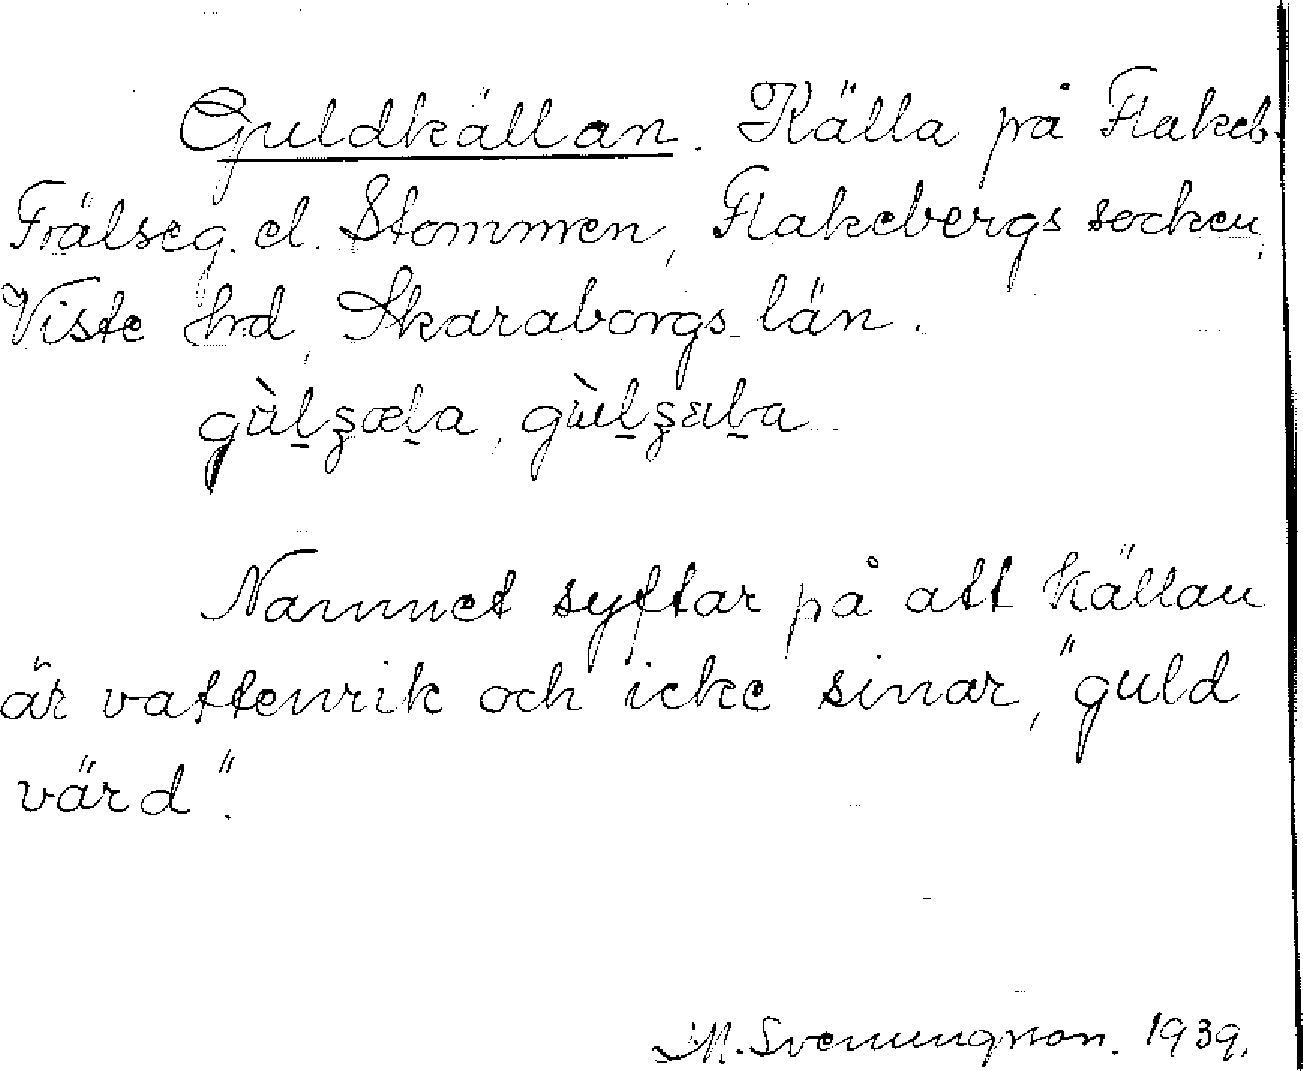 Guldkällan. Källa på Flakeb.
Frälseg. el. Stommen, Flakebergs socken,
Viste hrd, Skaraborgs län.
Namnet syftar på att källan
är vattenrik och icke sinar, "guld
värd".
M. Svenungson. 1939.